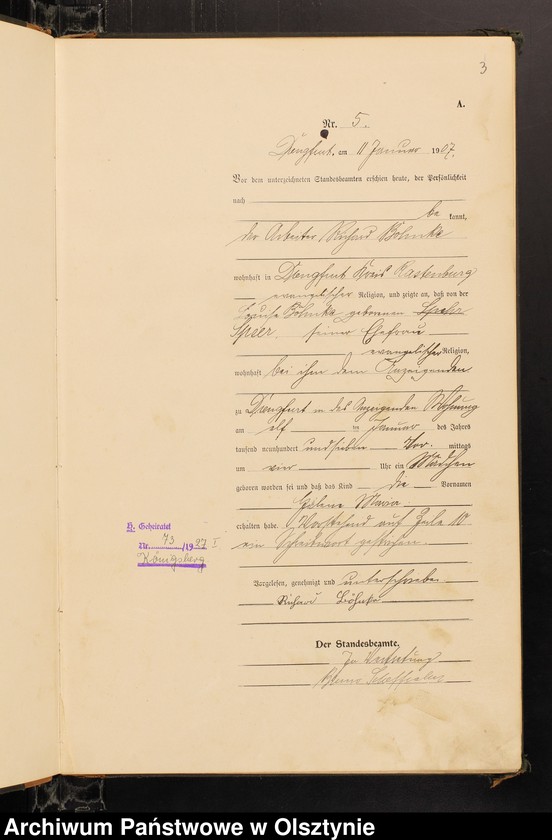 3
A.
Nr. 5.
Dengfurt, am 11 Januar 1907.
Vor dem unterzeichneten Standesbeamten erschien heute, der Persönlichkeit
nach
be kannt,
der Arbeiter Richard Böhnke
wohnhaft in Dengfurt Kreis Rastenburg
evangelischer Religion, und zeigte an, daß von der
Louise Böhnke geborenen
Speer seiner Ehefrau
evangelischer Religion,
wohnhaft bei ihm dem Anzeigenden
zu Dengfurt in des Anzeigenden Wohnung
am elf ten Januar des Jahres
tausend neunhundert und sieben Vor mittags
um vier Uhr ein Mädchen
geboren worden sei und daß das Kind die Vornamen
Helene Maria
erhalten habe. Vorstehend auf Zeile 10
ein Schreibwort gestrichen.
Vorgelesen, genehmigt und unterschrieben
Richard Böhnke
Der Standesbeamte.
In Vertretung
H. Geheiratet
Nr. 73 /1927 I
Königsberg
Archiwum Państwowe w Olsztynie